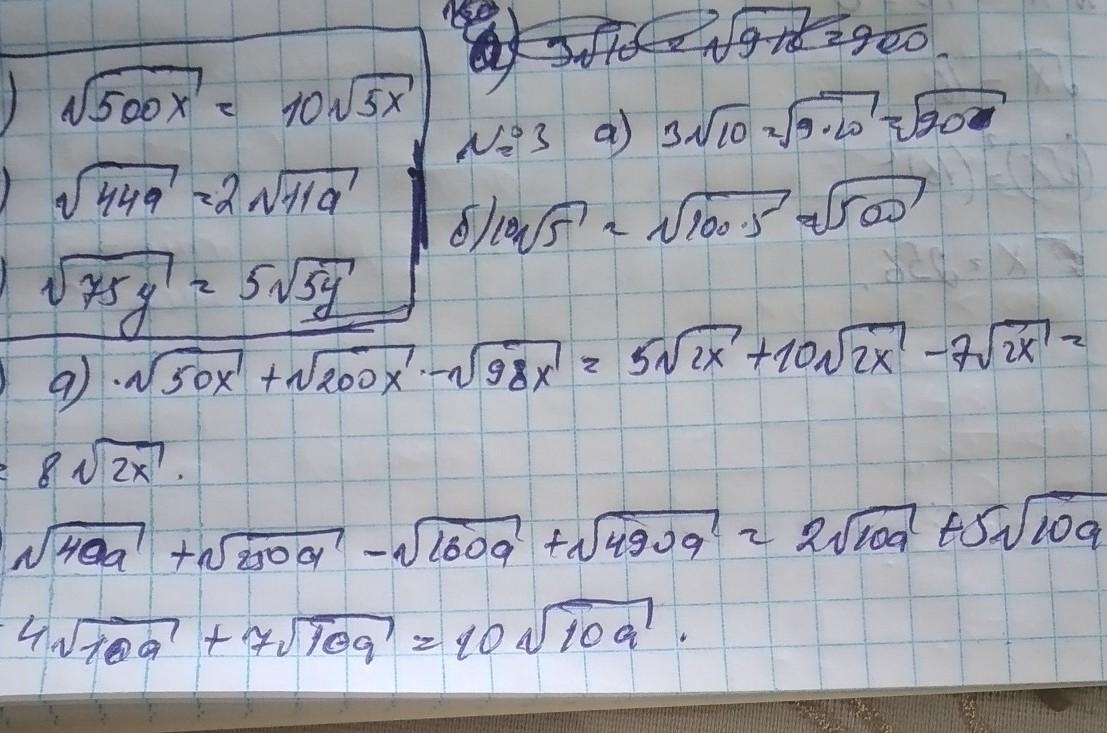 ) √500x = 10√5x
) √44a = 2√11a
) √75y = 5√5y
а) 3√10 = √9·10 = 900
№3 а) 3√10 = √9·10 = √90
б) 10√5 = √100·5 = √500
) а) √50x + √200x - √98x = 5√2x + 10√2x - 7√2x =
= 8√2x.
) √40a + √250a - √160a + √490a = 2√10a + 5√10a
- 4√10a + 7√10a = 10√10a.